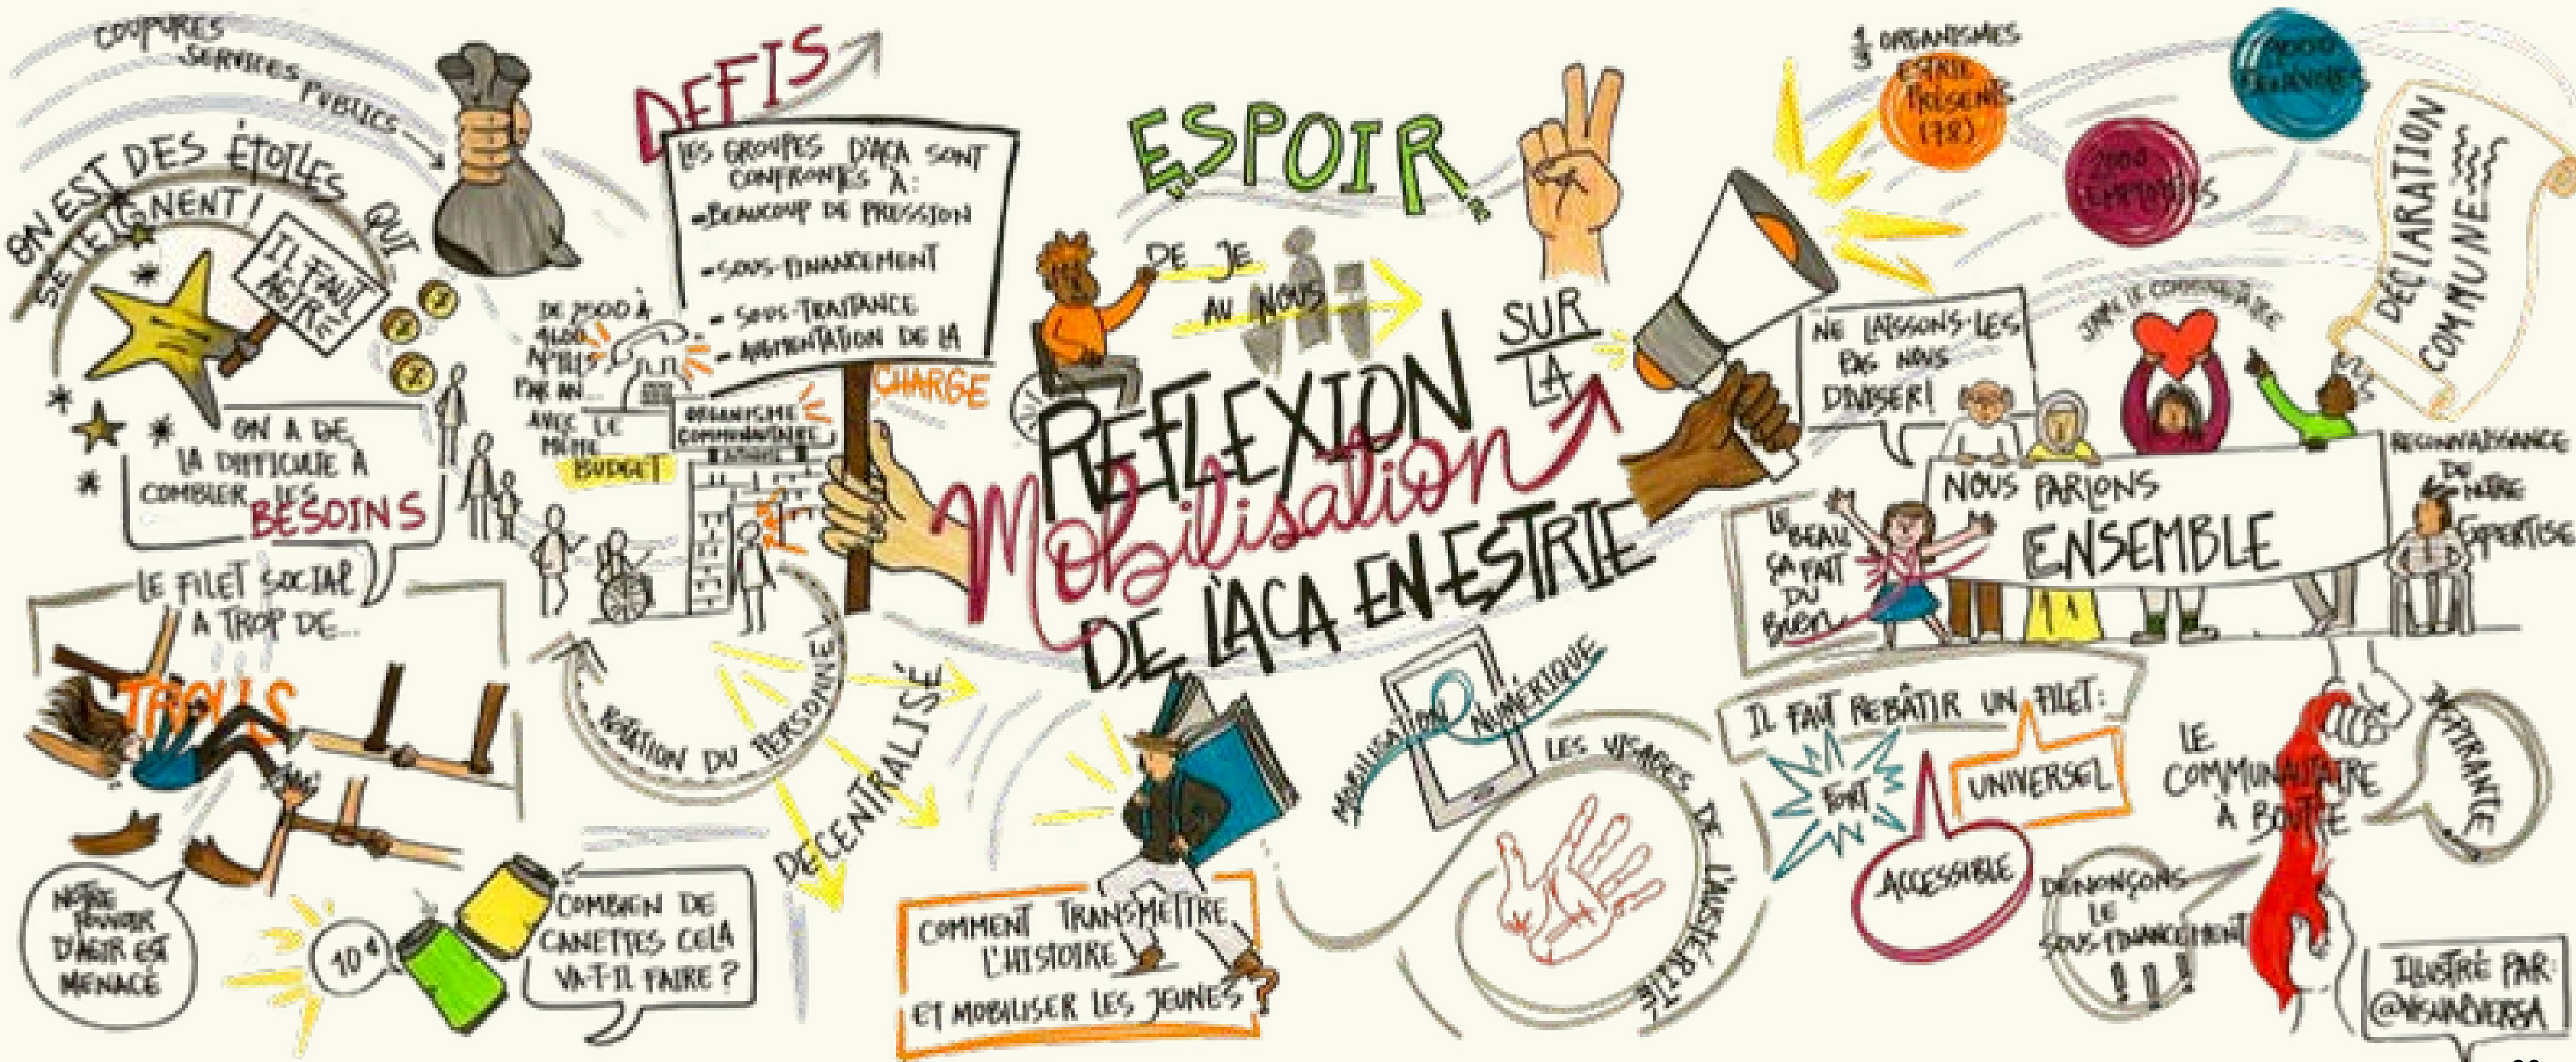 COUPURES
SERVICES
PUBLICS
ON EST DES ÉTOILES QUI
SE TEIGNENT!
IL FAUT
AGIR
ON A DE
LA DIFFICULTÉ À
COMBLER LES
BESOINS
LE FILET SOCIAL
A TROP DE...
NOTRE
POUVOIR
D'AGIR EST
MENACÉ
10¢
COMBIEN DE
CANETTES CELA
VA-T-IL FAIRE?
DÉFIS
LES GROUPES D'ACA SONT
CONFRONTÉS À:
- BEAUCOUP DE PRESSION
- SOUS-FINANCEMENT
- SOUS-TRAITANCE
- AUGMENTATION DE LA
CHARGE
PAR AN...
AVEC LE
MÊME
BUDGET
ORGANISME
COMMUNAUTAIRE
ROTATION DU PERSONNEL
DÉCENTRALISÉ
ESPOIR
DE JE
AU NOUS
RÉFLEXION
SUR
LA
Mobilisation
DE L'ACA EN ESTRIE
COMMENT TRANSMETTRE
L'HISTOIRE
ET MOBILISER LES JEUNES?
MOBILISATION NUMÉRIQUE
LES VISAGES DE L'AUSTÉRITÉ
1/3 ORGANISMES
ESTRIE
PRÉSENTS
(78)
2000
EMPLOYÉS
BÉNÉVOLES
DÉCLARATION
COMMUNE
J'AIME LE COMMUNAUTAIRE
NE LAISSONS-LES
PAS NOUS
DIVISER!
NOUS PARLONS
ENSEMBLE
RECONNAISSANCE
DE
NOTRE
EXPERTISE
LE
BEAU
ÇA FAIT
DU
Bien
IL FAUT REBÂTIR UN FILET:
FORT
UNIVERSEL
ACCESSIBLE
LE
COMMUNAUTAIRE
À BOUTTE
DÉNONÇONS
LE
SOUS-FINANCEMENT
!!!
ILLUSTRÉ PAR:
@VISUALVERSA